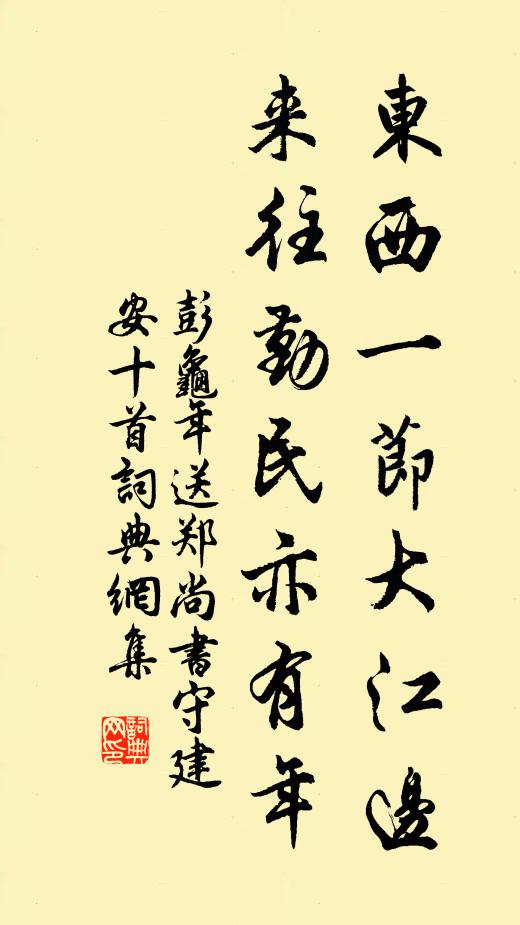 東西一節大江邊
来往勤民亦有年
彭龜年送郑尚書守建
安十首詞典網集
詞典網印